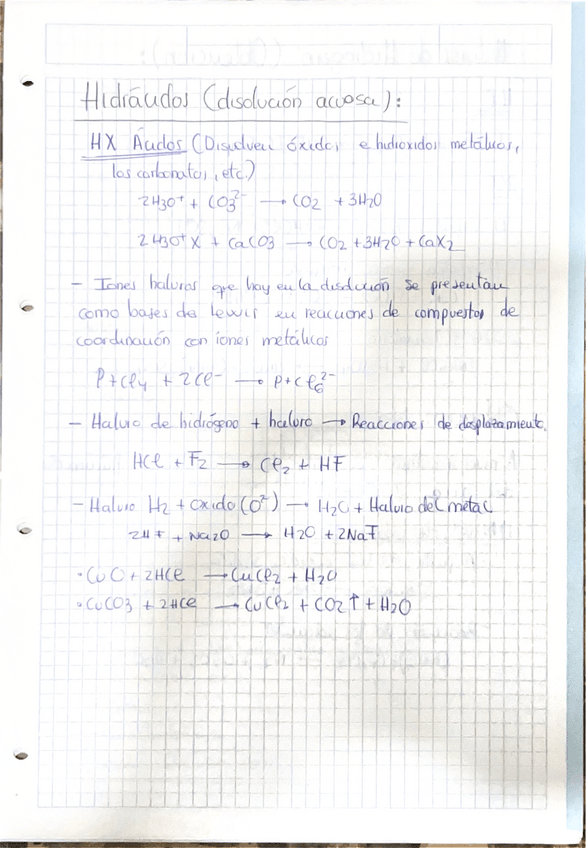 Hidrácidos (disolución acuosa):
HX Ácidos (Disuelven óxidos e hidróxidos metálicos,
los carbonatos, etc.)
2H3O+ + CO3^2- → CO2 + 3H2O
2H3O+X + CaCO3 → CO2 + 3H2O + CaX2
- Iones haluros que hay en la disolución se presentan
como bases de Lewis en reacciones de compuestos de
coordinación con iones metálicos
PtCl4 + 2Cl- → PtCl6^2-
- Haluro de hidrógeno + haluro → Reacciones de desplazamiento.
HCl + F2 → Cl2 + HF
- Haluro H2 + óxido (O^2-) → H2O + Haluro del metal
2HF + Na2O → H2O + 2NaF
• CuO + 2HCl → CuCl2 + H2O
• CuCO3 + 2HCl → CuCl2 + CO2↑ + H2O